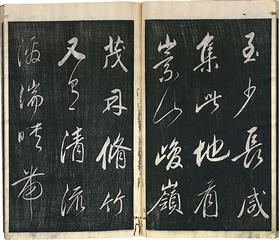 至少長咸
集此地有
崇山峻嶺
茂林脩竹
又有清流
激湍暎帶